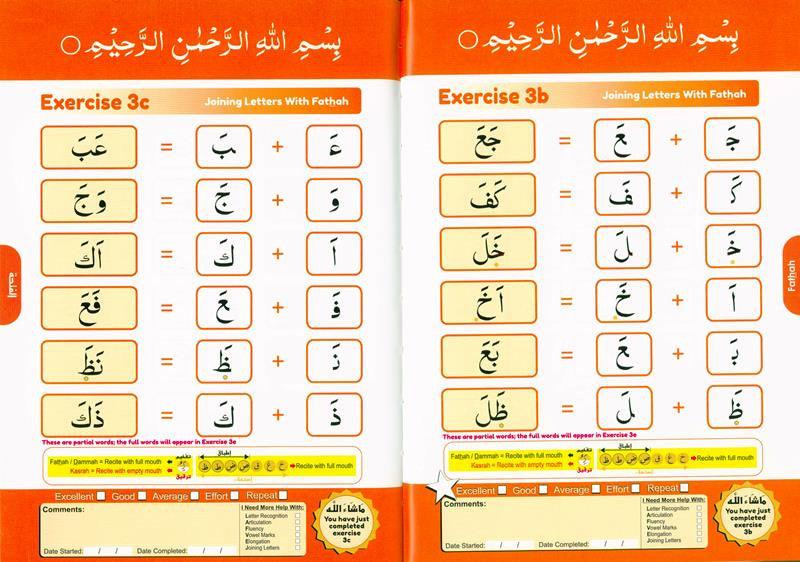 بِسْمِ اللهِ الرَّحْمٰنِ الرَّحِيْمِ
Exercise 3b Joining Letters With Fatḥah
جَ + عَ = جَعَ
كَ + فَ = كَفَ
خَ + لَ = خَلَ
اَ + خَ = اَخَ
بَ + عَ = بَعَ
ظَ + لَ = ظَلَ
These are partial words; the full words will appear in Exercise 3e
Fatḥah / Ḍammah = Recite with full mouth
Kasrah = Recite with empty mouth
تفخيم
ترقيق
إطباق
Recite with full mouth
Excellent Good Average Effort Repeat
Comments:
Date Started: / / Date Completed: / /
I Need More Help With:
Letter Recognition
Articulation
Fluency
Vowel Marks
Elongation
Joining Letters
ماشاء الله
You have just
completed
exercise
3b
Fatḥah
بِسْمِ اللهِ الرَّحْمٰنِ الرَّحِيْمِ
Exercise 3c Joining Letters With Fatḥah
عَ + بَ = عَبَ
وَ + جَ = وَجَ
اَ + كَ = اَكَ
فَ + عَ = فَعَ
نَ + ظَ = نَظَ
ذَ + كَ = ذَكَ
These are partial words; the full words will appear in Exercise 3e
Fatḥah / Ḍammah = Recite with full mouth
Kasrah = Recite with empty mouth
تفخيم
ترقيق
إطباق
Recite with full mouth
Excellent Good Average Effort Repeat
Comments:
Date Started: / / Date Completed: / /
I Need More Help With:
Letter Recognition
Articulation
Fluency
Vowel Marks
Elongation
Joining Letters
ماشاء الله
You have just
completed
exercise
3c
الفتحة